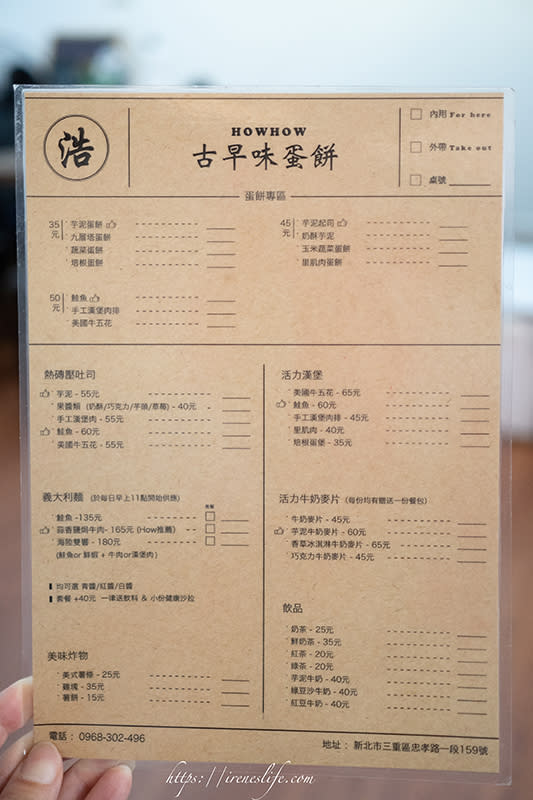 浩
HOWHOW
古早味蛋餅
內用 For here
外帶 Take out
桌號
蛋餅專區
35元
芋泥蛋餅
九層塔蛋餅
蔬菜蛋餅
培根蛋餅
45元
芋泥起司
奶酥芋泥
玉米蔬菜蛋餅
里肌肉蛋餅
50元
鮭魚
手工漢堡肉排
美國牛五花
熱磚壓吐司
芋泥 - 55元
果醬類 (奶酥/巧克力/芋頭/草莓) - 40元
手工漢堡肉 - 55元
鮭魚 - 60元
美國牛五花 - 55元
活力漢堡
美國牛五花 - 65元
鮭魚 - 60元
手工漢堡肉排 - 45元
里肌肉 - 40元
培根蛋堡 - 35元
義大利麵 (於每日早上11點開始供應)
套餐
鮭魚 -135元
蒜香鹽焗牛肉- 165元 (How推薦)
海陸雙饗 - 180元
(鮭魚or 鮮蝦 + 牛肉or漢堡肉)
均可選 青醬/紅醬/白醬
套餐 +40元 一律送飲料 & 小份健康沙拉
活力牛奶麥片 (每份均有贈送一份餐包)
牛奶麥片 - 45元
芋泥牛奶麥片 - 60元
香草冰淇淋牛奶麥片 - 65元
巧克力牛奶麥片 - 45元
美味炸物
美式薯條 - 25元
雞塊 - 35元
薯餅 - 15元
飲品
奶茶 - 25元
鮮奶茶 - 35元
紅茶 - 20元
綠茶 - 20元
芋泥牛奶 - 40元
綠豆沙牛奶 - 40元
紅豆牛奶 - 40元
電話： 0968-302-496
地址： 新北市三重區忠孝路一段159號
https://ireneslife.com/